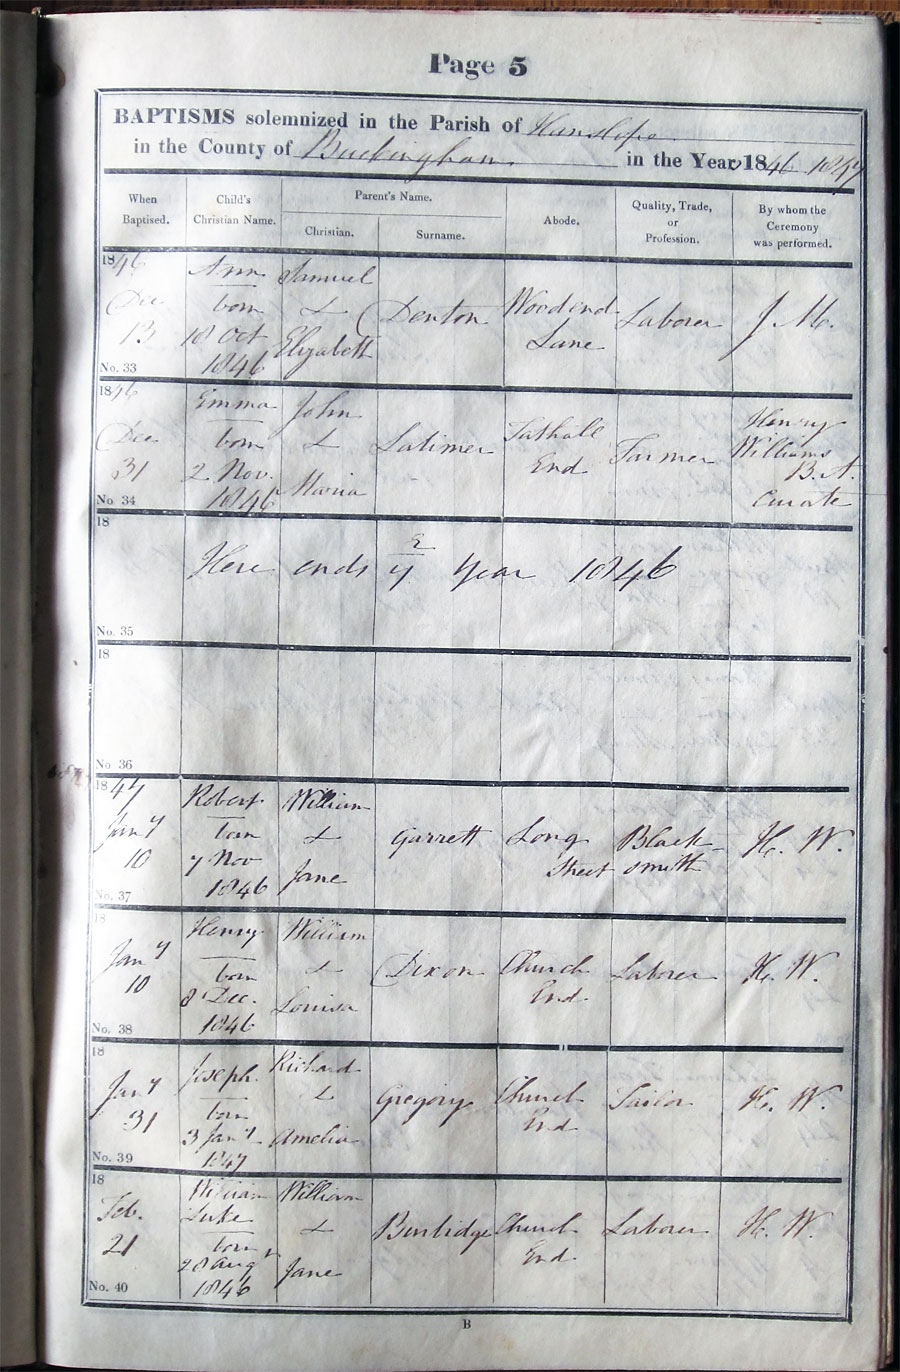 Page 5
BAPTISMS solemnized in the Parish of Hanslope
in the County of Buckingham in the Year 1846 1847
When Baptised.
Child's Christian Name.
Parent's Name.
Christian.
Surname.
Abode.
Quality, Trade, or Profession.
By whom the Ceremony was performed.
1846
Dec
13
No. 33
Ann
born
18 Oct
1846
Samuel
&
Elizabeth
Denton
Woodend
Lane
Laborer
J. M.
1846
Dec
31
No 34
Emma
born
2 Nov.
1846
John
&
Maria
Latimer
Tathall
End
Farmer
Henry
Williams
B. A.
Curate
18
Here ends yᵉ Year 1846
No. 35
18
No 36
1847
Janʸ
10
No. 37
Robert
born
7 Nov
1846
William
&
Jane
Garrett
Long
Street
Black-
smith
H. W.
18
Janʸ
10
No. 38
Henry
born
8 Dec.
1846
William
&
Louisa
Dixon
Church
End
Laborer
H. W.
18
Janʸ
31
No. 39
Joseph
born
3 Janʸ
1847
Richard
&
Amelia
Gregory
Church
End
Tailor
H. W.
18
Feb.
21
No. 40
William
Luke
born
28 Aug
1846
William
&
Jane
Burbidge
Church
End
Laborer
H. W.
B